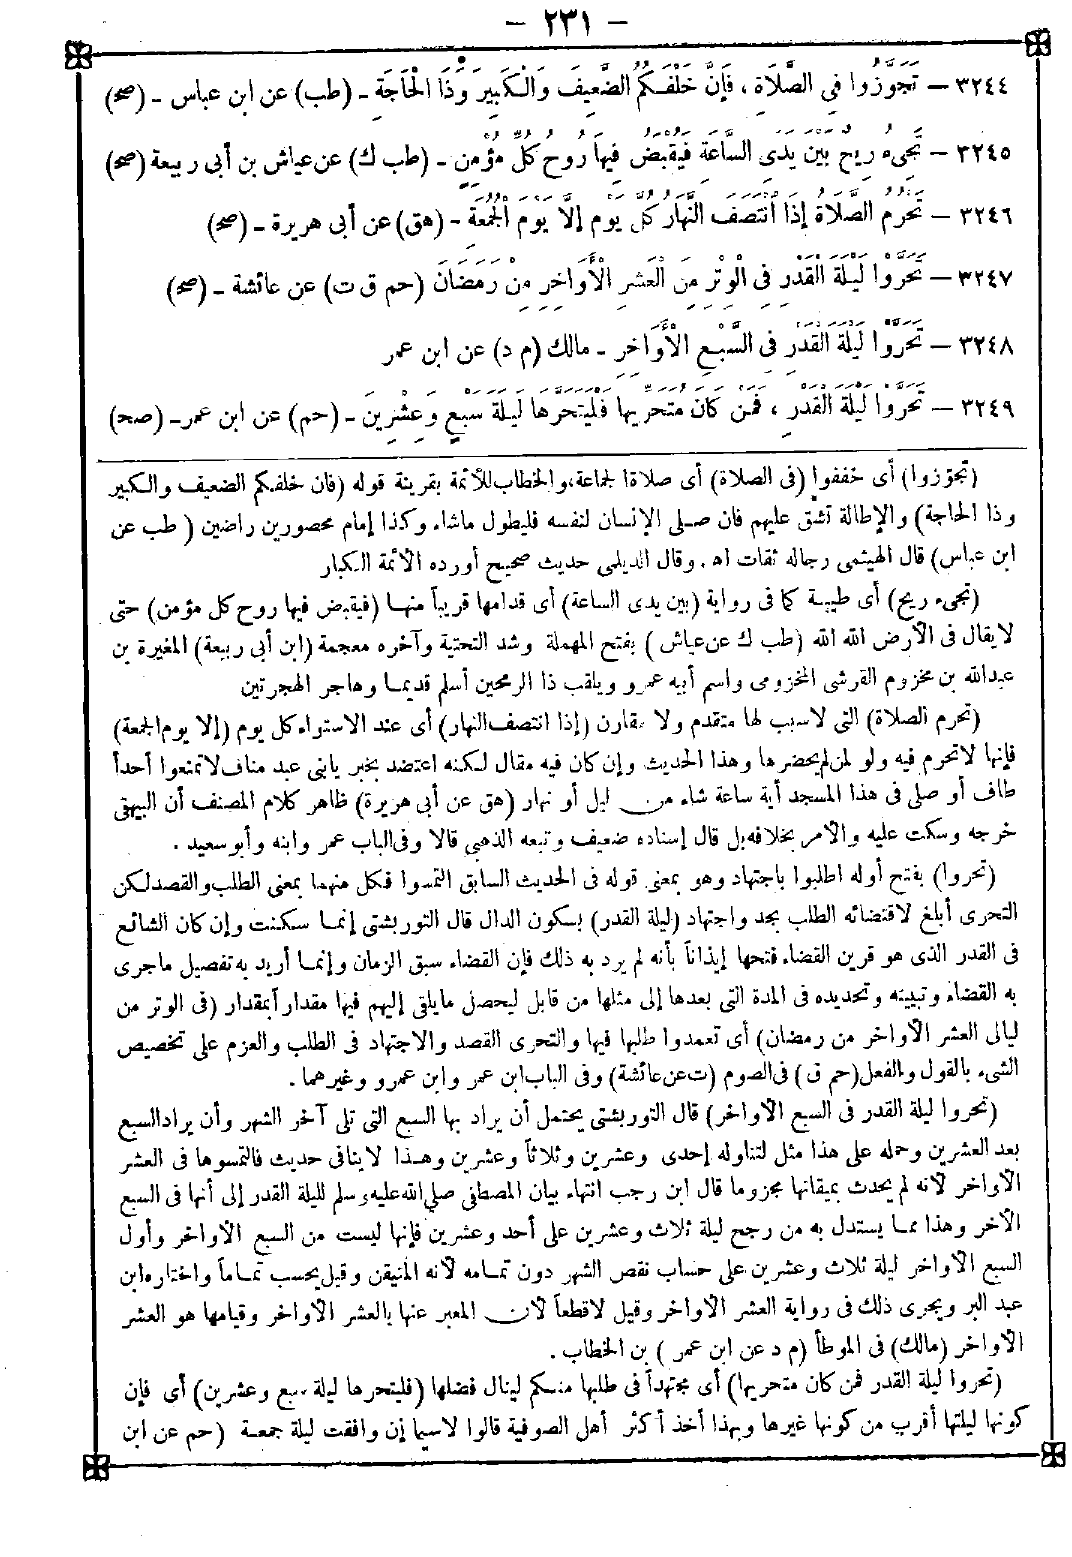 – ٢٣١ –
٣٢٤٤ – تَجَوَّزُوا فِي الصَّلَاةِ ، فَإِنَّ خَلْفَكُمُ الضَّعِيفَ وَالْكَبِيرَ وَذَا الْحَاجَةِ – (طب) عن ابن عباس – (صح)
٣٢٤٥ – تَجِيءُ رِيحٌ بَيْنَ يَدَيِ السَّاعَةِ فَيُقْبَضُ فِيهَا رُوحُ كُلِّ مُؤْمِنٍ – (طب ك) عن عياش بن أبى ربيعة (صح)
٣٢٤٦ – تَحْرُمُ الصَّلَاةُ إِذَا انْتَصَفَ النَّهَارُ كُلَّ يَوْمٍ إِلَّا يَوْمَ الْجُمُعَةِ – (هق) عن أبى هريرة – (صح)
٣٢٤٧ – تَحَرَّوْا لَيْلَةَ الْقَدْرِ فِي الْوِتْرِ مِنَ الْعَشْرِ الْأَوَاخِرِ مِنْ رَمَضَانَ (حم ق ت) عن عائشة – (صح)
٣٢٤٨ – تَحَرَّوْا لَيْلَةَ الْقَدْرِ فِي السَّبْعِ الْأَوَاخِرِ – مالك (م د) عن ابن عمر
٣٢٤٩ – تَحَرَّوْا لَيْلَةَ الْقَدْرِ ، فَمَنْ كَانَ مُتَحَرِّيهَا فَلْيَتَحَرَّهَا لَيْلَةَ سَبْعٍ وَعِشْرِينَ – (حم) عن ابن عمر – (صح)
(تجوّزوا) أى خففوا (فى الصلاة) أى صلاة الجماعة، والخطاب للأئمة بقرينة قوله (فان خلفكم الضعيف والكبير
وذا الحاجة) والإطالة تشق عليهم فان صلى الإنسان لنفسه فليطول ماشاء وكذا إمام محصورين راضين ( طب عن
ابن عباس) قال الهيثمى رجاله ثقات اه . وقال الديلمى حديث صحيح أورده الأئمة الكبار
(تجىء ريح) أى طيبة كما فى رواية (بين يدى الساعة) أى قدامها قريباً منها (فيقبض فيها روح كل مؤمن) حتى
لايقال فى الأرض الله الله (طب ك عن عياش ) بفتح المهملة وشد التحتية وآخره معجمة (ابن أبى ربيعة) المغيرة بن
عبدالله بن مخزوم القرشى المخزومى واسم أبيه عمرو ويلقب ذا الرمحين أسلم قديما وهاجر الهجرتين
(تحرم الصلاة) التى لاسبب لها متقدم ولا مقارن (إذا انتصف النهار) أى عند الاستواء كل يوم (إلا يوم الجمعة)
فإنها لاتحرم فيه ولو لمن لم يحضرها وهذا الحديث وإن كان فيه مقال لكنه اعتضد بخبر يابنى عبد مناف لاتمنعوا أحداً
طاف أو صلى فى هذا المسجد أية ساعة شاء من ليل أو نهار (هق عن أبى هريرة) ظاهر كلام المصنف أن البيهقى
خرجه وسكت عليه والأمر بخلافه بل قال إسناده ضعيف وتبعه الذهبى قالا وفى الباب عمر وابنه وأبو سعيد .
(تحروا) بفتح أوله اطلبوا باجتهاد وهو بمعنى قوله فى الحديث السابق التمسوا فكل منهما بمعنى الطلب والقصد لكن
التحرى أبلغ لاقتضائه الطلب بجد واجتهاد (ليلة القدر) بسكون الدال قال التوربشتى إنما سكنت وإن كان الشائع
فى القدر الذى هو قرين القضاء فتحها إيذاناً بأنه لم يرد به ذلك فإن القضاء سبق الزمان وإنما أريد به تفصيل ماجرى
به القضاء وتبيينه وتحديده فى المدة التى بعدها إلى مثلها من قابل ليحصل مايلقى إليهم فيها مقدار أبمقدار (فى الوتر من
ليالى العشر الأواخر من رمضان) أى تعمدوا طلبها فيها والتحرى القصد والاجتهاد فى الطلب والعزم على تخصيص
الشىء بالقول والفعل (حم ق) فى الصوم (ت عن عائشة) وفى الباب ابن عمر وابن عمرو وغيرهما .
(تحروا ليلة القدر فى السبع الأواخر) قال التوربشتى يحتمل أن يراد بها السبع التى تلى آخر الشهر وأن يراد السبع
بعد العشرين وحمله على هذا مثل لتناوله إحدى وعشرين وثلاثاً وعشرين وهذا لاينافى حديث فالتمسوها فى العشر
الأواخر لأنه لم يحدث بميقاتها مجزوما قال ابن رجب انتهاء بيان المصطفى صلى الله عليه وسلم لليلة القدر إلى أنها فى السبع
الأخر وهذا مما يستدل به من رجح ليلة ثلاث وعشرين على أحد وعشرين فإنها ليست من السبع الأواخر وأول
السبع الأواخر ليلة ثلاث وعشرين على حساب نقص الشهر دون تمامه لأنه المتيقن وقيل يحسب تماماً واختاره ابن
عبد البر ويجرى ذلك فى رواية العشر الأواخر وقيل لا قطعاً لأن المعبر عنها بالعشر الأواخر وقيامها هو العشر
الأواخر (مالك) فى الموطأ (م د عن ابن عمر ) بن الخطاب .
(تحروا ليلة القدر فمن كان متحريها) أى مجتهداً فى طلبها منكم لينال فضلها (فليتحرها ليلة سبع وعشرين) أى فإن
كونها ليلتها أقرب من كونها غيرها وبهذا أخذ أكثر أهل الصوفية قالوا لاسيما إن وافقت ليلة جمعة (حم عن ابن